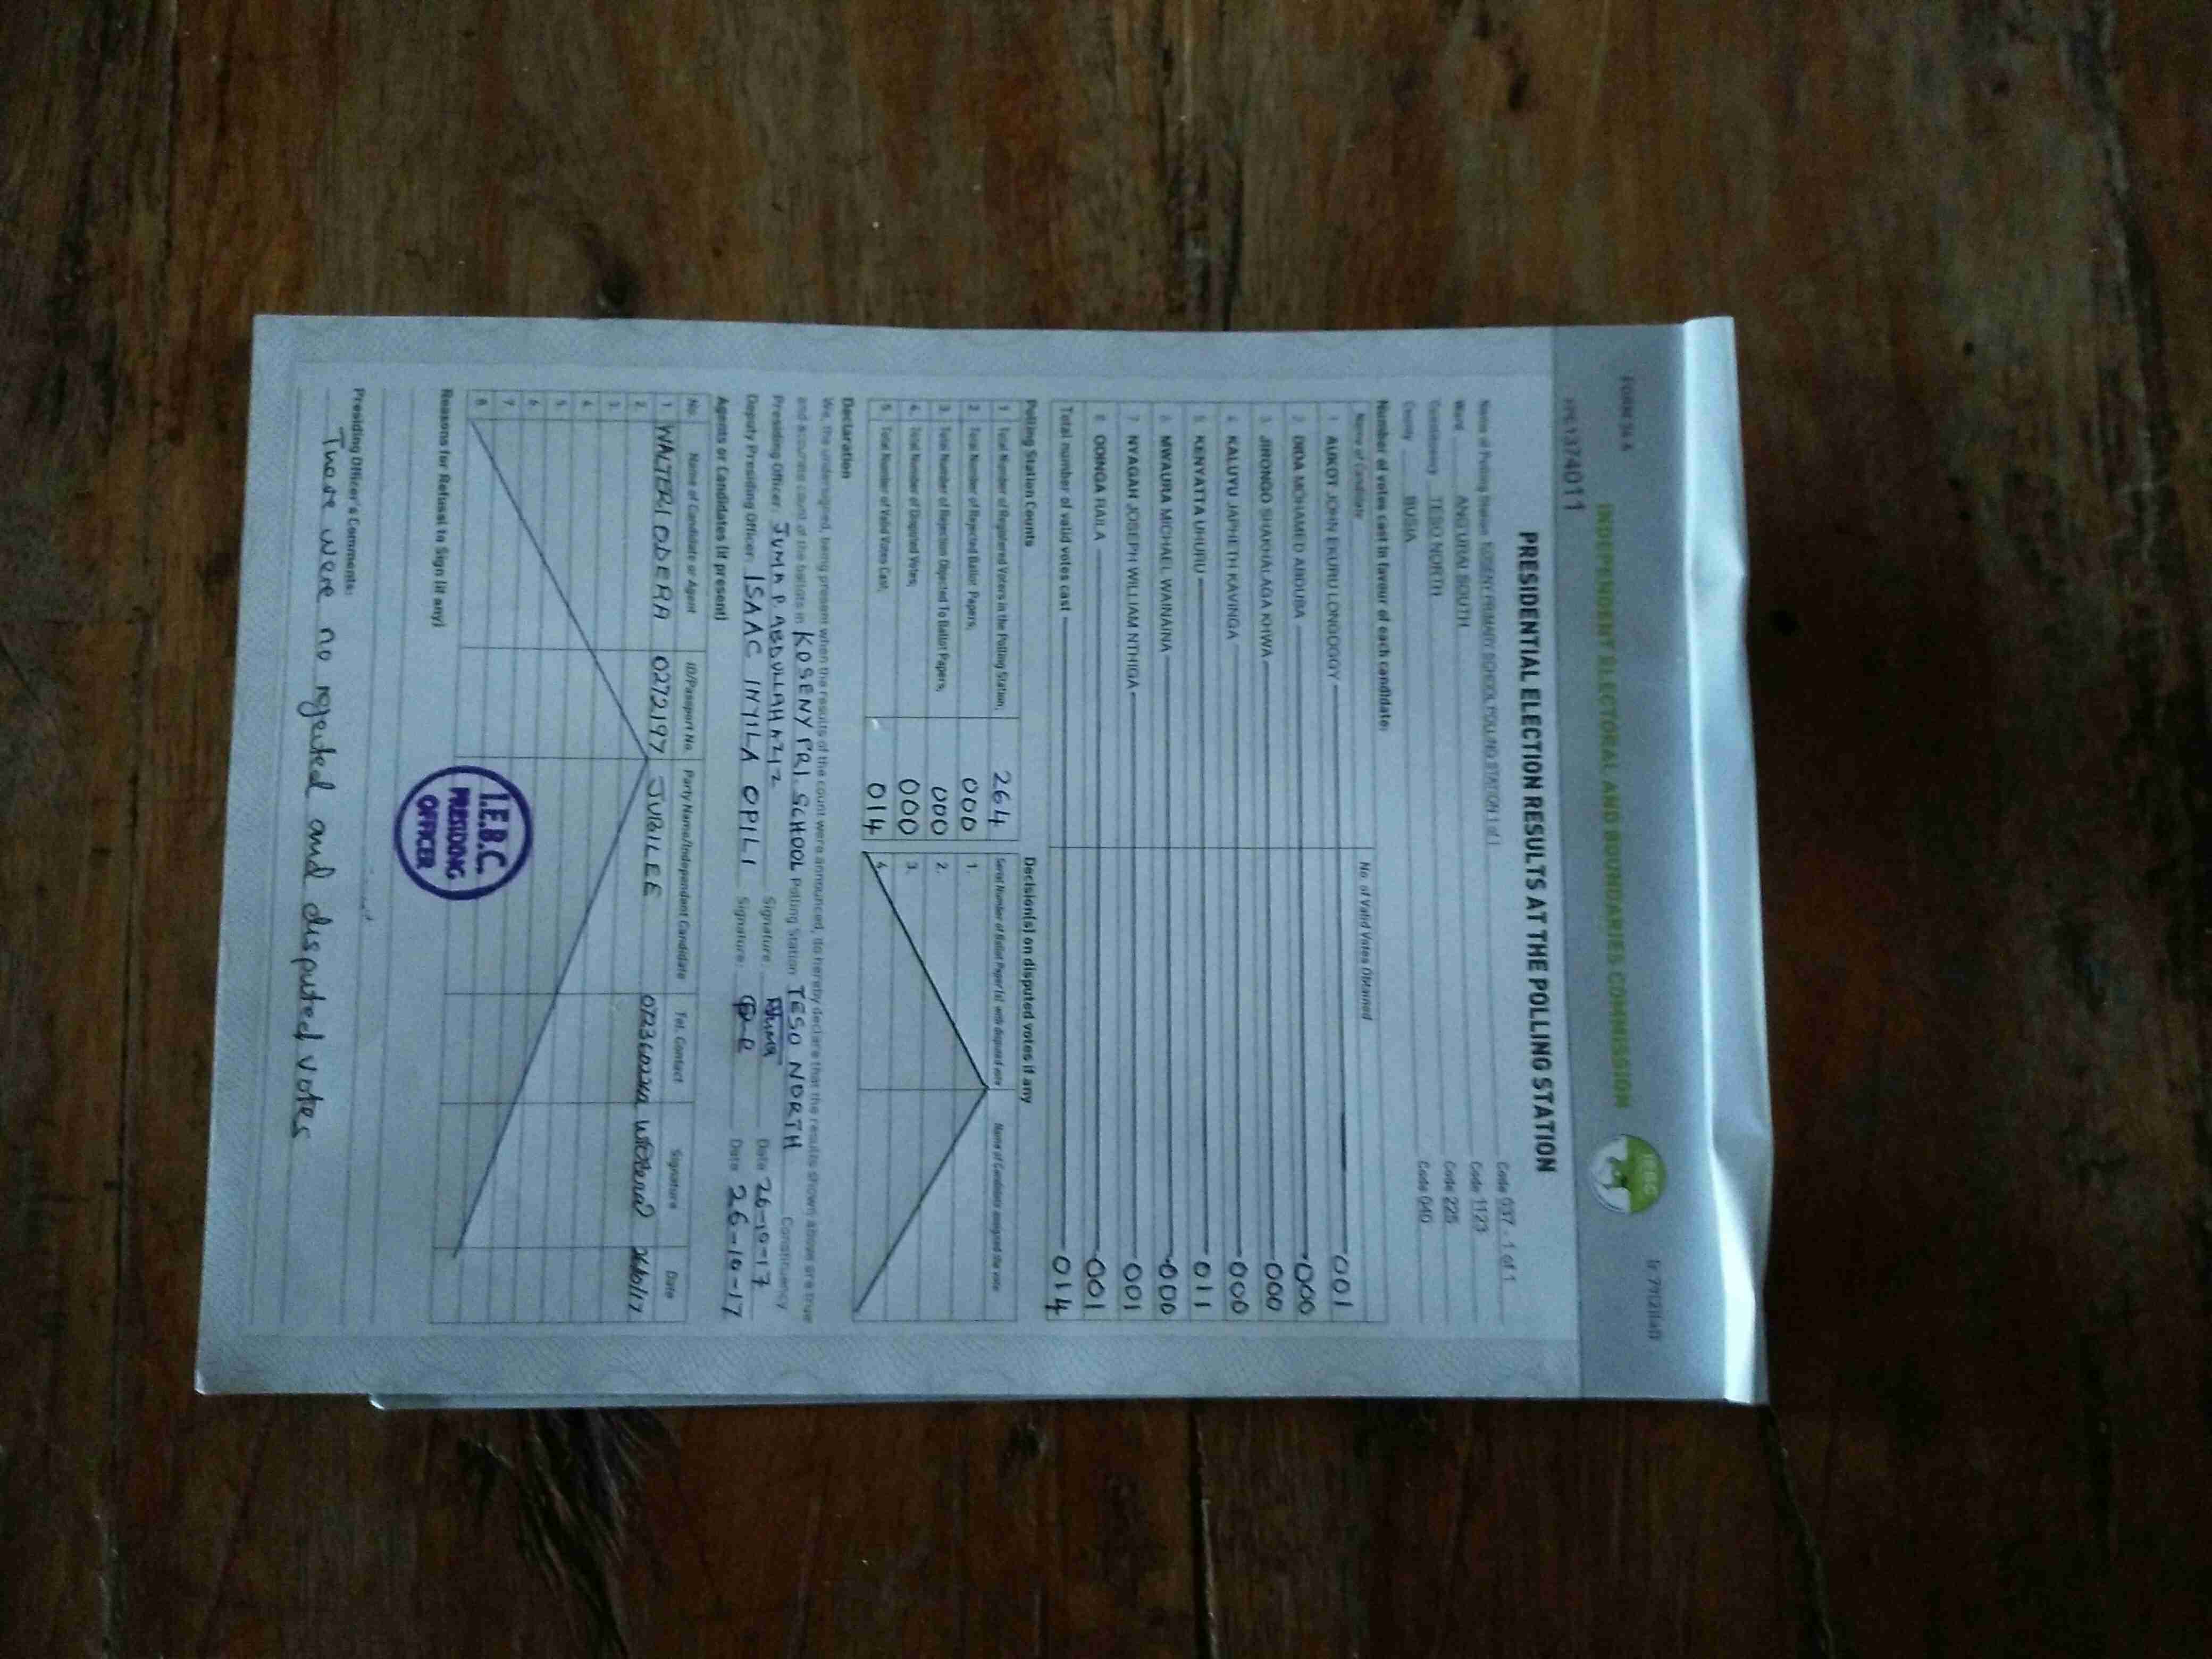 FORM 34 A
r 79(2)(a)
INDEPENDENT ELECTORAL AND BOUNDARIES COMMISSION
IEBC
1374011
PRESIDENTIAL ELECTION RESULTS AT THE POLLING STATION
Name of Polling Station KOSENY PRIMARY SCHOOL POLLING STATION 1 of 1 Code 037 - 1 of 1
Ward ANG'URAI SOUTH Code 1123
Constituency TESO NORTH Code 225
County BUSIA Code 040
Number of votes cast in favour of each candidate:
Name of Candidate No. of Valid Votes Obtained
1. AUKOT JOHN EKURU LONGOGGY 001
2. DIDA MOHAMED ABDUBA 000
3. JIRONGO SHAKHALAGA KHWA 000
4. KALUYU JAPHETH KAVINGA 000
5. KENYATTA UHURU 011
6. MWAURA MICHAEL WAINAINA 000
7. NYAGAH JOSEPH WILLIAM NTHIGA 001
8. ODINGA RAILA 001
Total number of valid votes cast 014
Polling Station Counts Decision(s) on disputed votes if any
Serial Number of Ballot Paper(s) with disputed vote Name of Candidate assigned the vote
1. Total Number of Registered Voters in the Polling Station; 264
2. Total Number of Rejected Ballot Papers; 000 1.
3. Total Number of Rejection Objected To Ballot Papers; 000 2.
4. Total Number of Disputed Votes; 000 3.
5. Total Number of Valid Votes Cast; 014 4.
Declaration
We, the undersigned, being present when the results of the count were announced, do hereby declare that the results shown above are true
and accurate count of the ballots in KOSENY PRI. SCHOOL Polling Station TESO NORTH Constituency
Presiding Officer: JUMA P. ABDULLAH AZIZ Signature: Date 26-10-17
Deputy Presiding Officer: ISAAC INYILA OPILI Signature: Date 26-10-17
Agents or Candidates (if present)
No. Name of Candidate or Agent ID/Passport No. Party Name/Independent Candidate Tel. Contact Signature Date
1. WALTER I ODERA 0272197 JUBILEE
2.
3.
4.
5.
6.
7.
8.
I.E.B.C.
PRESIDING
OFFICER
Reasons for Refusal to Sign (if any)
Presiding Officer's Comments:
There were no rejected and disputed votes